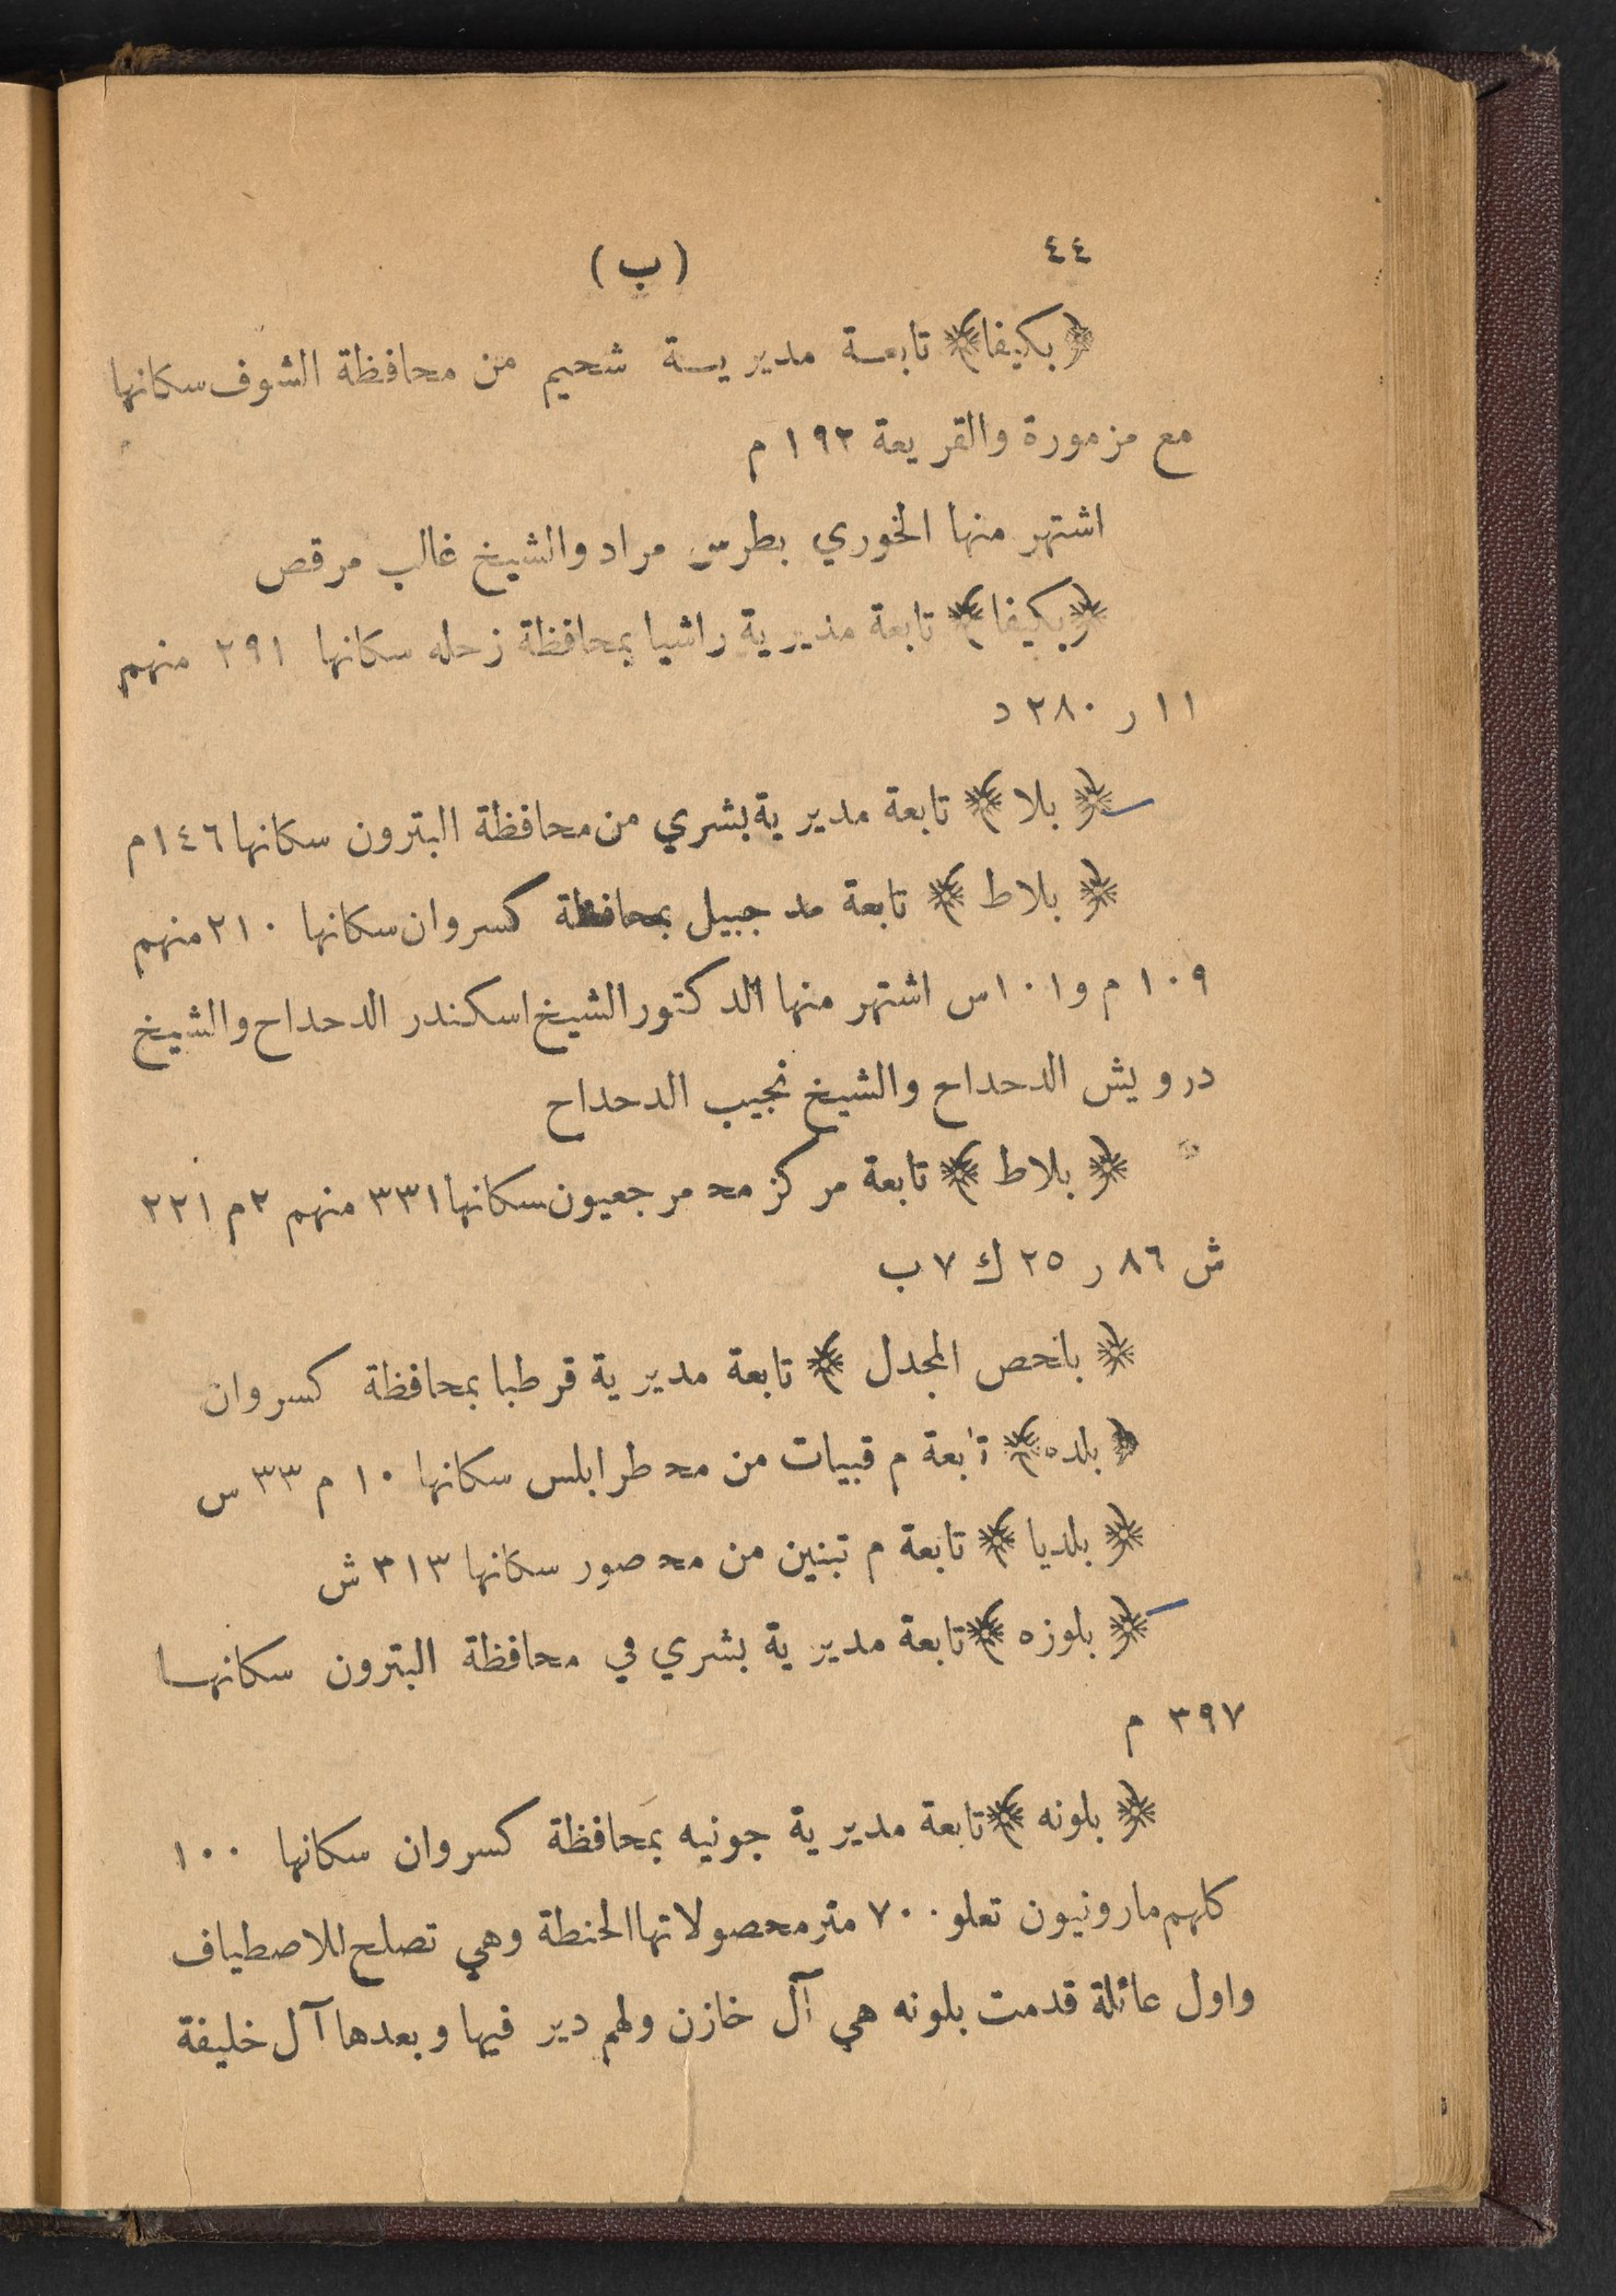 ٤٤
(ب)
﴿بكيفا﴾ تابعة مديرية شحيم من محافظة الشوف سكانها
مع مزمورة والقريعة ١٩٢ م
اشتهر منها الخوري بطرس مراد والشيخ غالب مرقص
﴿بكيفا﴾ تابعة مديرية راشيا بمحافظة زحله سكانها ٢٩١ منهم
١١ ر ٢٨٠ د
﴿بلا﴾ تابعة مديرية بشري من محافظة البترون سكانها ١٤٦ م
﴿بلاط﴾ تابعة مد جبيل بمحافظة كسروان سكانها ٢١٠ منهم
١٠٩ م و١٠١ س اشتهر منها الدكتور الشيخ اسكندر الدحداح والشيخ
درويش الدحداح والشيخ نجيب الدحداح
﴿بلاط﴾ تابعة مركز مح مرجعيون سكانها ٣٣١ منهم ٢ م ٢٢١
ش ٨٦ ر ٢٥ ك ٧ ب
﴿بلحص المجدل﴾ تابعة مديرية قرطبا بمحافظة كسروان
﴿بلده﴾ تابعة م قبيات من مح طرابلس سكانها ١٠ م ٣٣ س
﴿بلديا﴾ تابعة م تبنين من مح صور سكانها ٣١٣ ش
﴿بلوزه﴾ تابعة مديرية بشري في محافظة البترون سكانها
٣٩٧ م
﴿بلونه﴾ تابعة مديرية جونيه بمحافظة كسروان سكانها ١٠٠
كلهم مارونيون تعلو ٧٠٠ متر محصولاتها الحنطة وهي تصلح للاصطياف
واول عائلة قدمت بلونه هي آل خازن ولهم دير فيها وبعدها آل خليفة